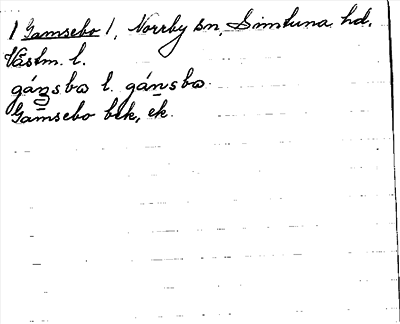 | Gamsebo |, Norrby sn, Simtuna hd.
Västm. l.
gáŋsbɷ l. gánsbɷ.
Gamsebo bek, ek.